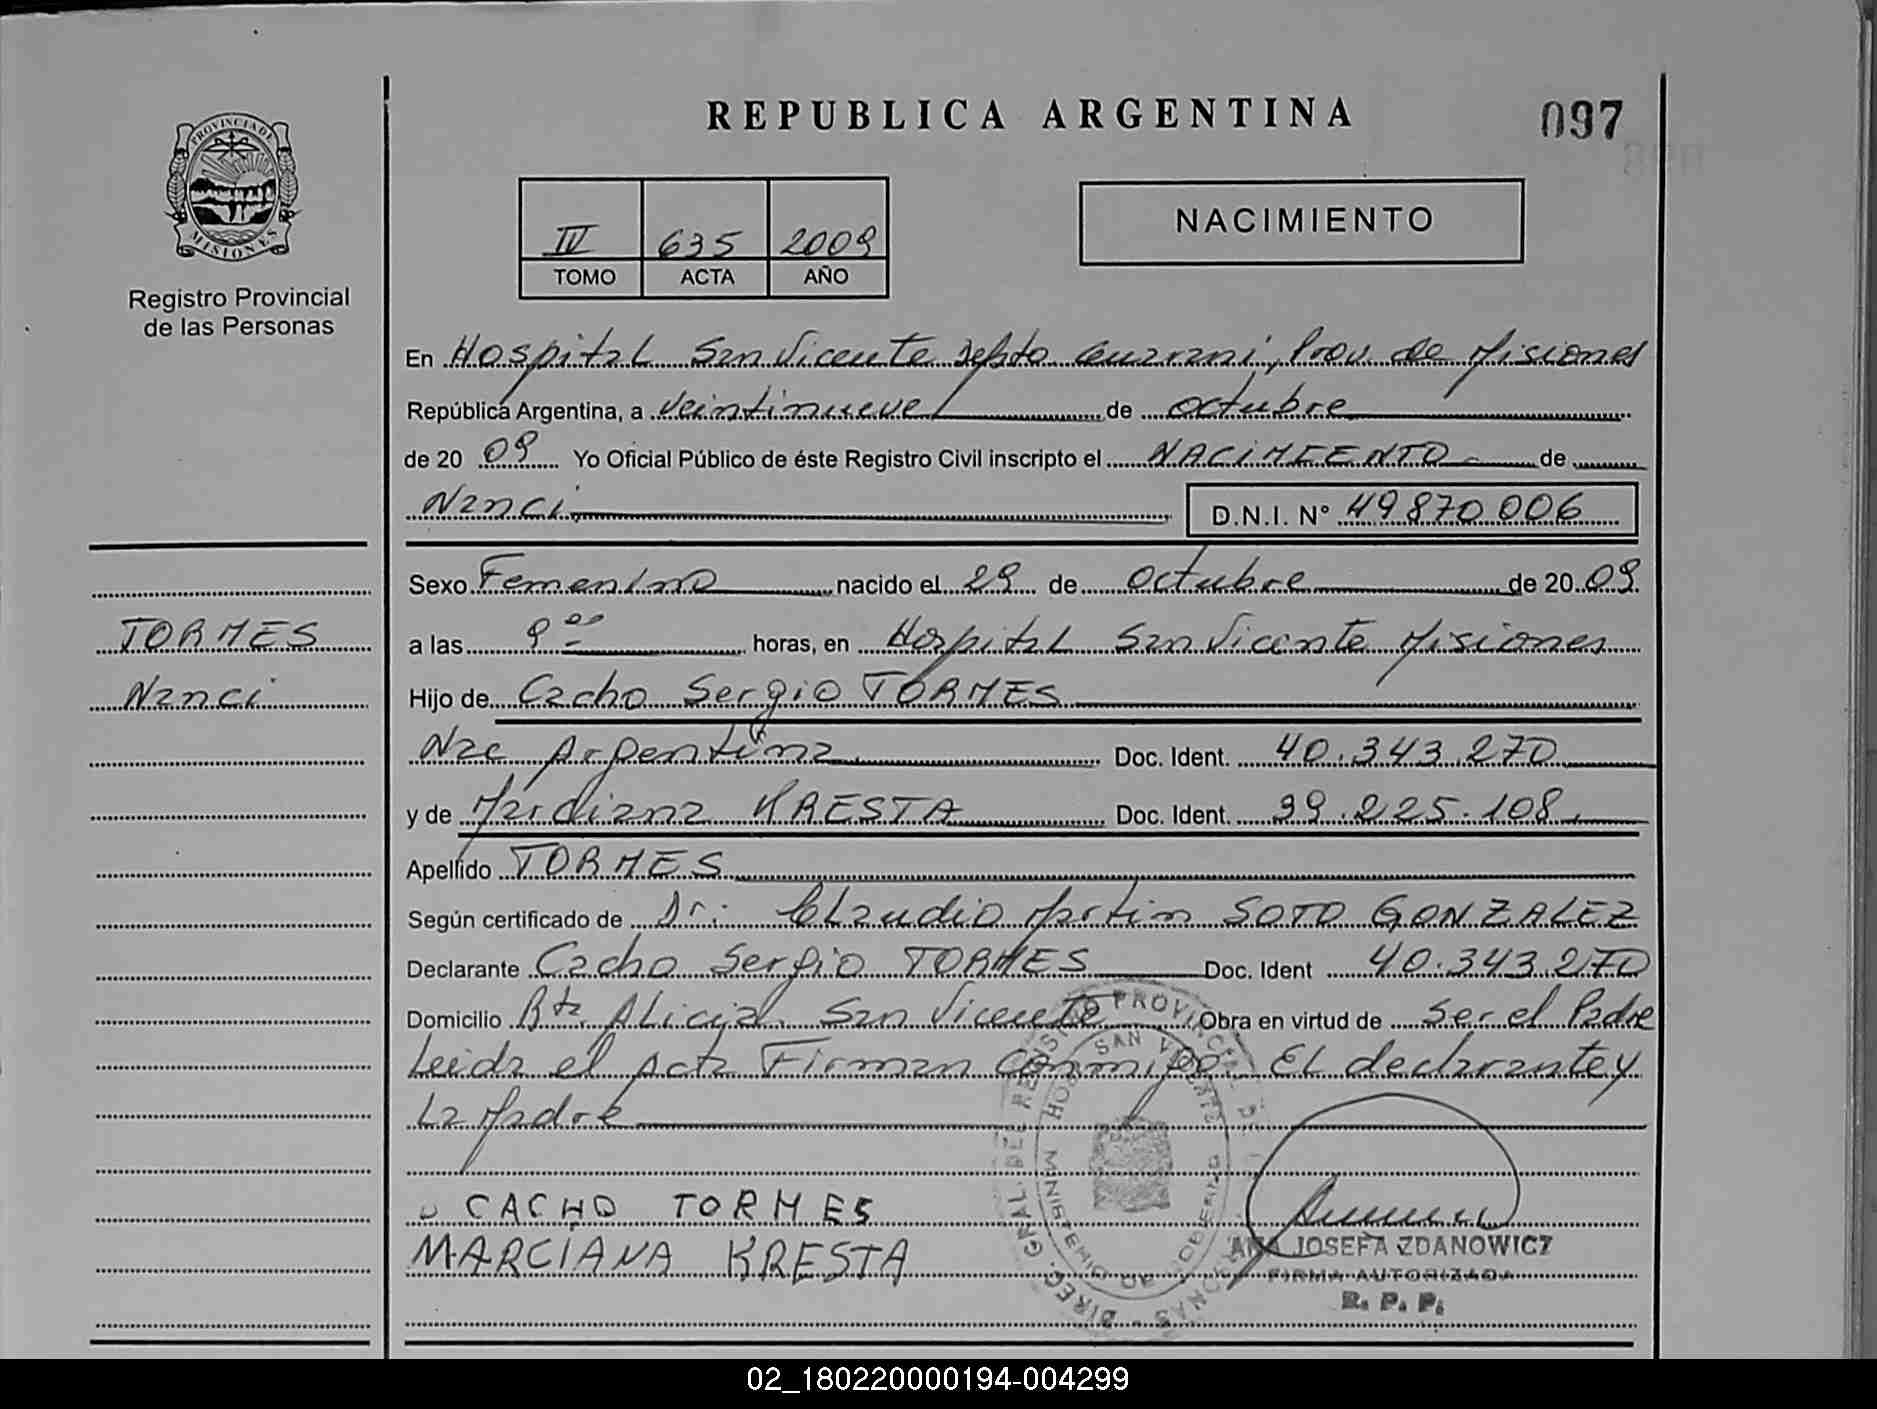 REPUBLICA ARGENTINA
097
PROVINCIA DE
MISIONES
Registro Provincial
de las Personas
IV 635 2009
TOMO ACTA AÑO
NACIMIENTO
En Hospital San Vicente Depto Guarani, Prov. de Misiones
República Argentina, a veintinueve de octubre
de 20 09 Yo Oficial Público de éste Registro Civil inscripto el NACIMIENTO de
Nanci D.N.I. N° 49870006
Sexo Femenino nacido el 29 de octubre de 20 09
TORMES
Nanci
a las 9 00 horas, en Hospital San Vicente Misiones
Hijo de Cacho Sergio TORMES
Nac Argentina Doc. Ident. 40.343.270
y de Marciana KRESTA Doc. Ident. 39.225.108.
Apellido TORMES
Según certificado de Dr: Claudio Martin SOTO GONZALEZ
Declarante Cacho Sergio TORMES Doc. Ident 40.343.270
Domicilio Bta. Alicia San Vicente Obra en virtud de Ser el Padre
Leida el Acta Firman Conmigo El declarante y
La Madre
CACHO TORMES
MARCIANA KRESTA
ANA JOSEFA ZDANOWICZ
FIRMA AUTORIZADA
R. P. P.
02_180220000194-004299